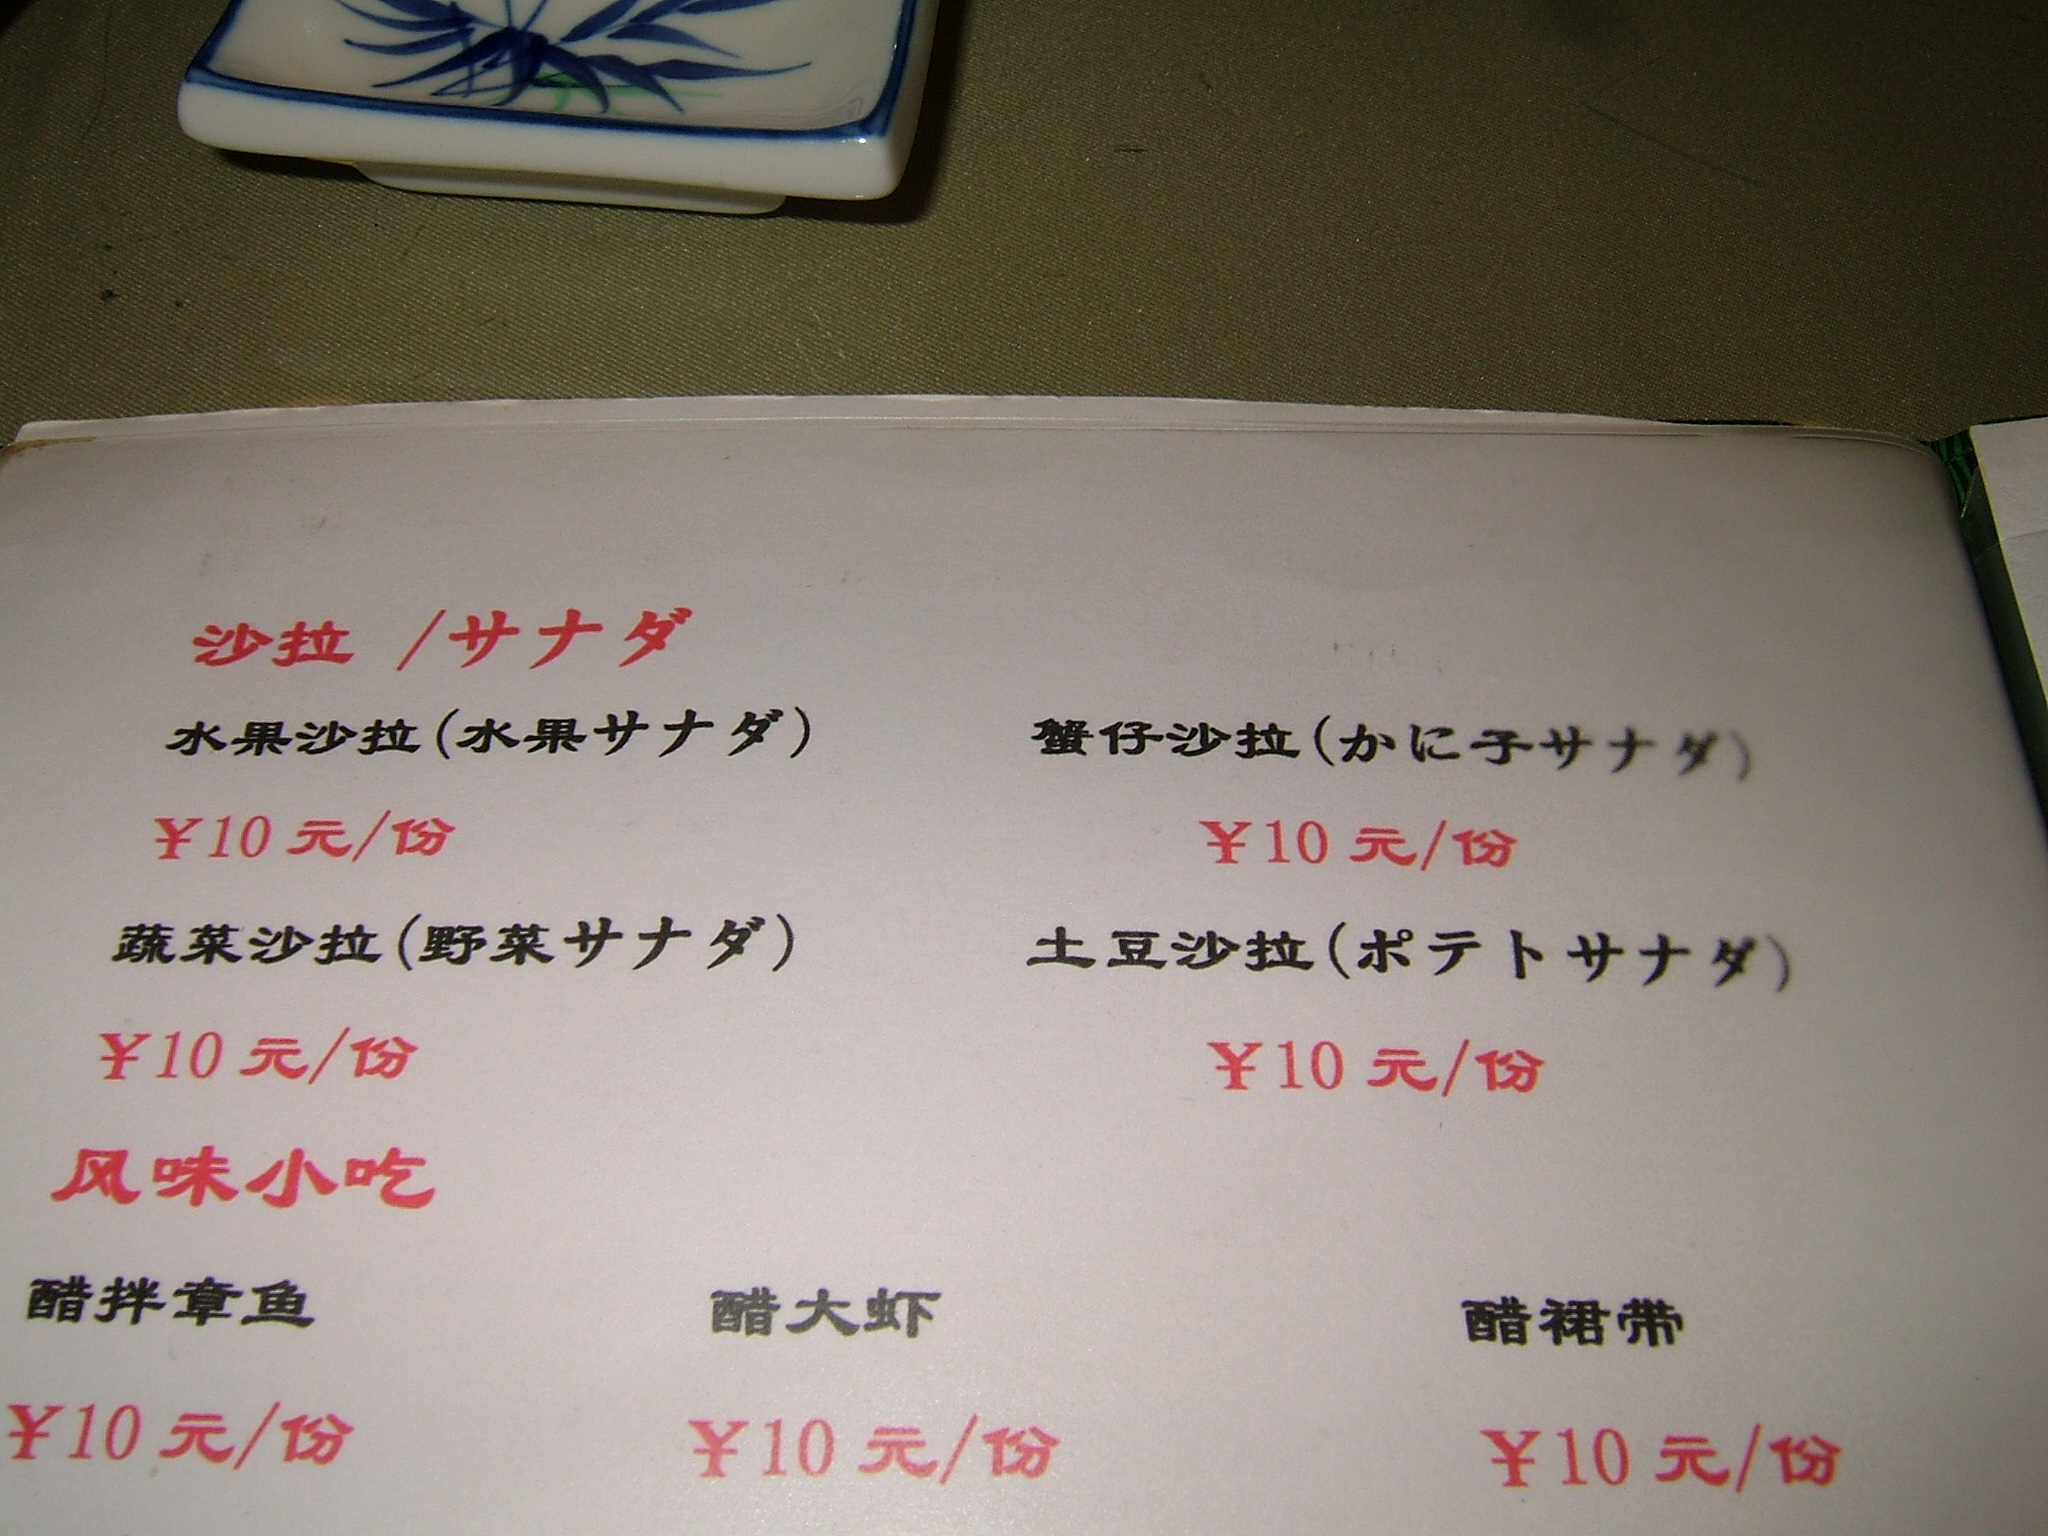 沙拉 /サナダ
水果沙拉(水果サナダ) 蟹仔沙拉(かに子サナダ)
¥10 元/份 ¥10 元/份
蔬菜沙拉(野菜サナダ) 土豆沙拉(ポテトサナダ)
¥10 元/份 ¥10 元/份
风味小吃
醋拌章鱼 醋大虾 醋裙带
¥10 元/份 ¥10 元/份 ¥10 元/份